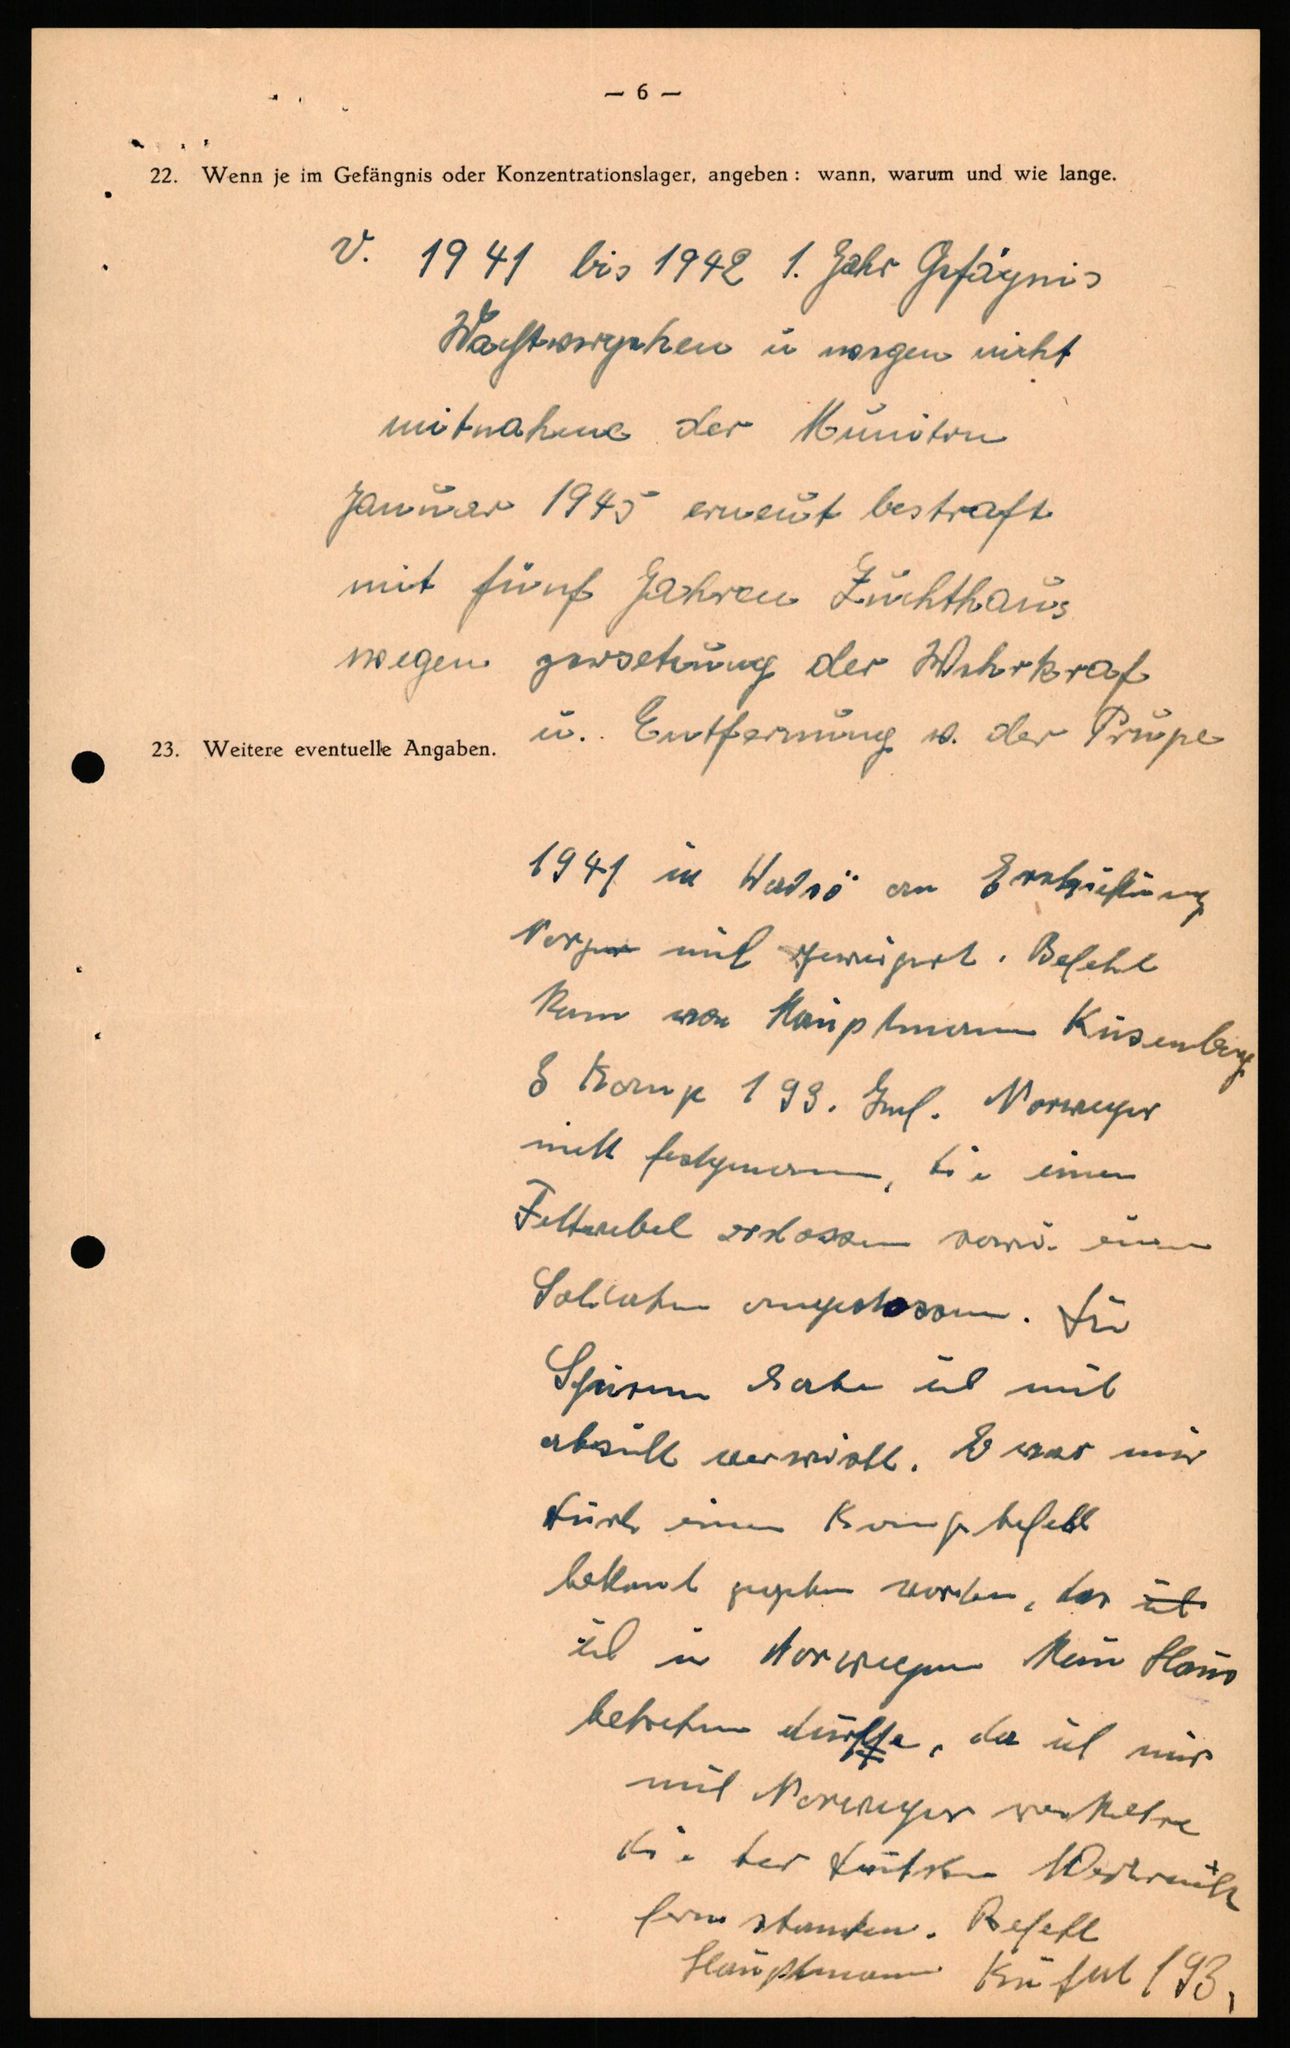 — 6 —
22. Wenn je im Gefängnis oder Konzentrationslager, angeben: wann, warum und wie lange.
v. 1941 bis 1942 1. Jahr Gefägnis
Wachtvergehen u wegen nicht
mitnahme der Muniton
Januar 1945 erneut bestraft
mit fünf Jahren Zuchthaus
wegen zersetzung der Wehrkraf
u. Entfernung v. der Trupe
23. Weitere eventuelle Angaben.
1941 in Wadsö an Erschießung
Befehl
kam von Hauptmann Küsenberg
8 Komp 193. Inf. Norweger
nicht festgenomm, die einen
Feltwebel erschossen sowie einen
Soldaten angeschossen. Die
Spuren habe ich mit
absicht verwischt. Es war mir
durch einen Kompbefehl
bekant gegeben worden, das ich
ich in Norwegen kein Haus
betreten dürfte, da ich nur
mit Norweger verkehre
die der deutschen
fern standen. Befehl
Hauptmann 193.